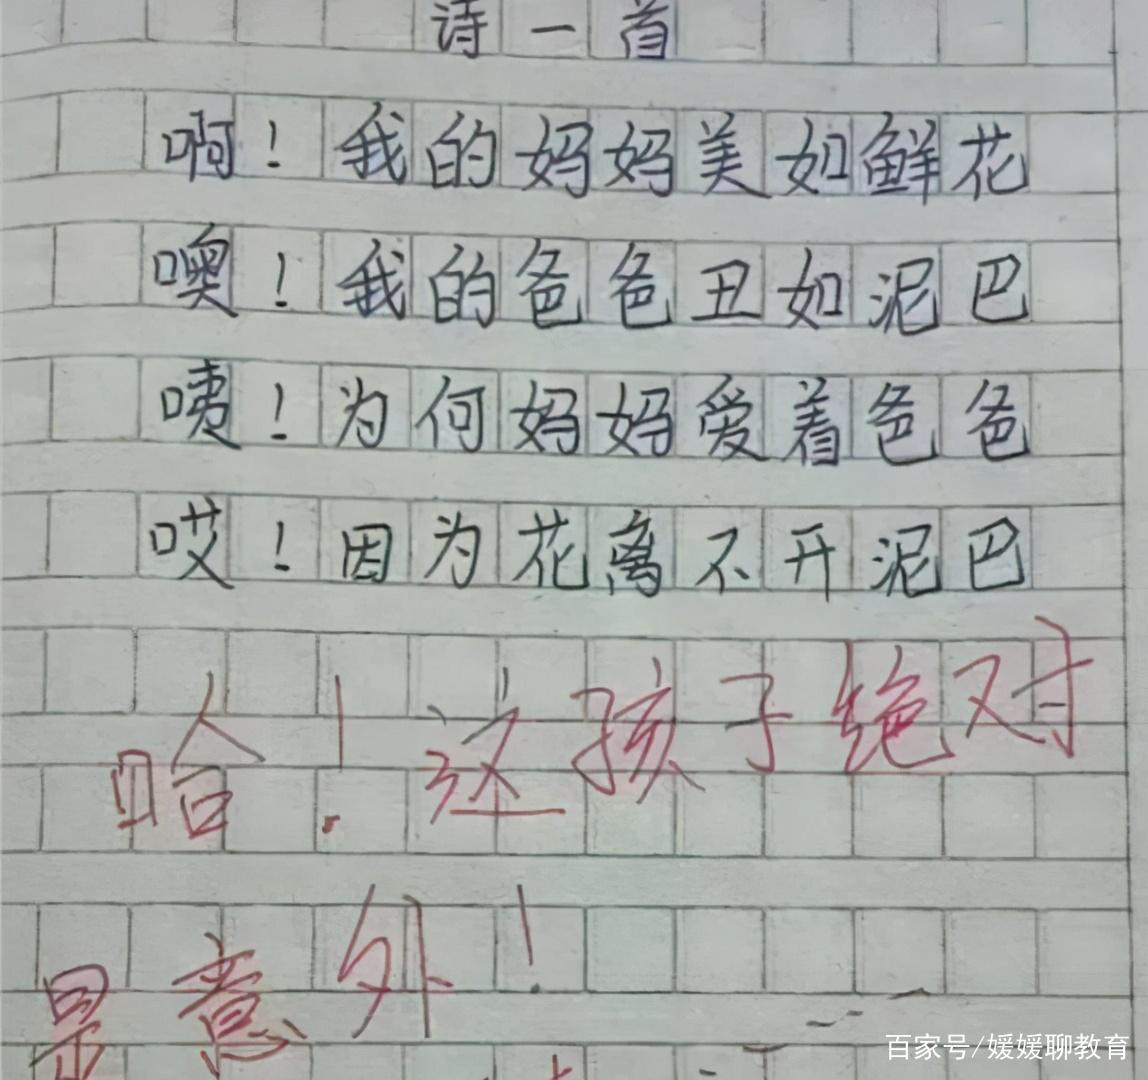 诗一首
啊！我的妈妈美如鲜花
噢！我的爸爸丑如泥巴
咦！为何妈妈爱着爸爸
哎！因为花离不开泥巴
哈！这孩子绝对
是意外！
百家号/媛媛聊教育